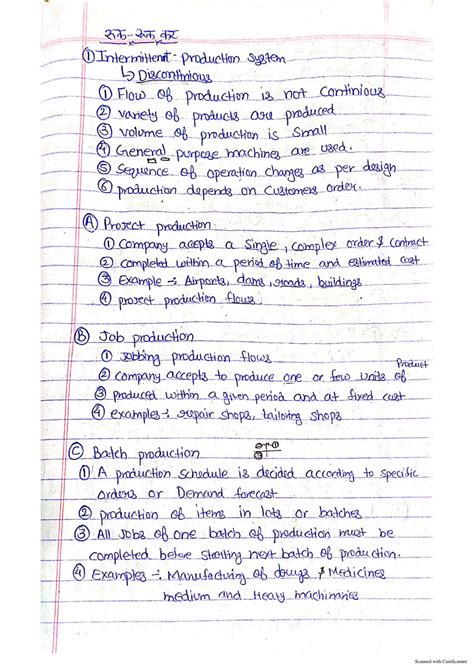 रुक-रुक कर
① Intermittent production system
↳ Discontinious
① Flow of production is not continious
② variety of products are produced
③ volume of production is small
④ General purpose machines are used.
⑤ Sequence of operation changes as per design
⑥ production depends on customers order.
Ⓐ Project production
① Company accepts a Single, complex order & contract
② completed within a period of time and estimated cost
③ Example :- Airports, dams, roads, buildings
④ project production flows
Ⓑ Job production
① Jobbing production flows
② company accepts to produce one or few units of Product
③ produced within a given period and at fixed cost
④ examples :- repair shops, tailoring shops
Ⓒ Batch production
① A production schedule is decided according to specific
orders or Demand forecast
② production of items in lots or batches
③ All Jobs of one batch of production must be
completed before starting next batch of production.
④ Examples :- Manufacturing of drugs & Medicines
medium and Heavy machinaries
Scanned with CamScanner